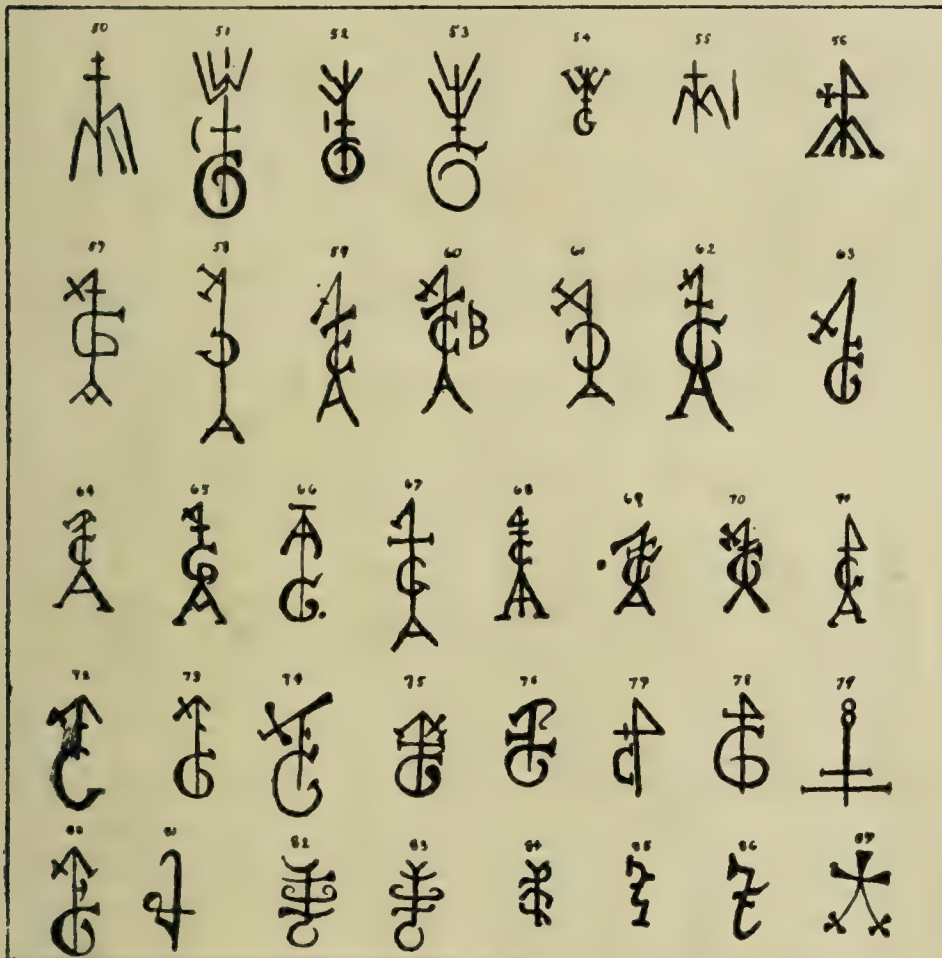 50 51 52 53 54 55 56
57 58 59 60 61 62 63
B
64 65 66 67 68 69 70 71
72 73 74 75 76 77 78 79
80 81 82 83 84 85 86 87